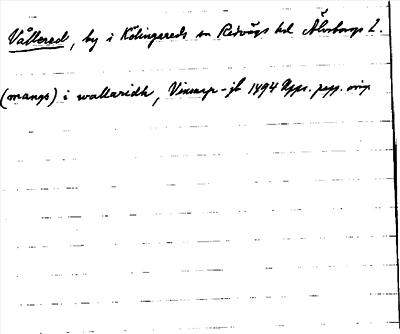 Vållered, by i Kölingereds sn Redvägs hd Älvsborgs l.
(mangs) i wallaridh, Vinsarp-jb 1494 Upps. papp. orig.